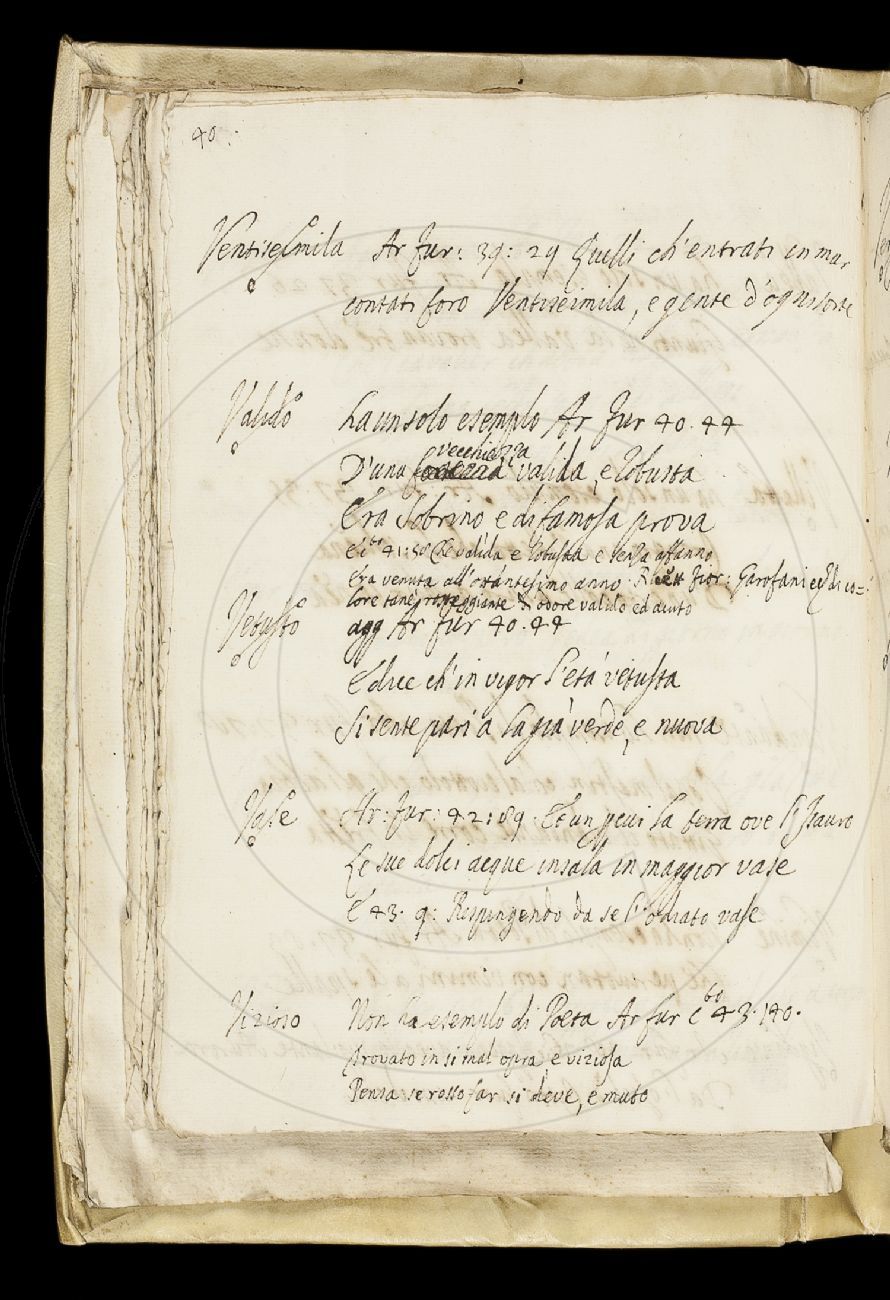 40.
Ventiseimila Ar fur: 39: 29 Quelli ch'entrati in mar
contati foro Ventiseimila, e gente d'ogni sorte
Valido ha un solo esemplo Ar fur 40. 44
vecchiezza
D'una valida, e robusta
Era Sobrino e di famosa prova
E cto 41: 50 Che valida e robusta e senza affanno
Era venuta all'ottantesimo anno. Ricett Fior: Garofani di co=
lore tanè rosseggiante odore valido ed acuto
Vetusto agg Ar fur 40. 44
E dice ch'in vigor l'età vetusta
Si sente pari a la già verde, e nuova
Vase Ar: fur: 42: 89. Et un per cui la terra ove l'Isauro
Le sue dolci acque insala in maggior vase
E 43. 9: Respingendo da se l'odiato vase
Vizioso Non ha esemplo di Poeta Ar fur cto 43. 140.
trovato in si mal opra, e viziosa
Pensa se rosso far si deve, e muto